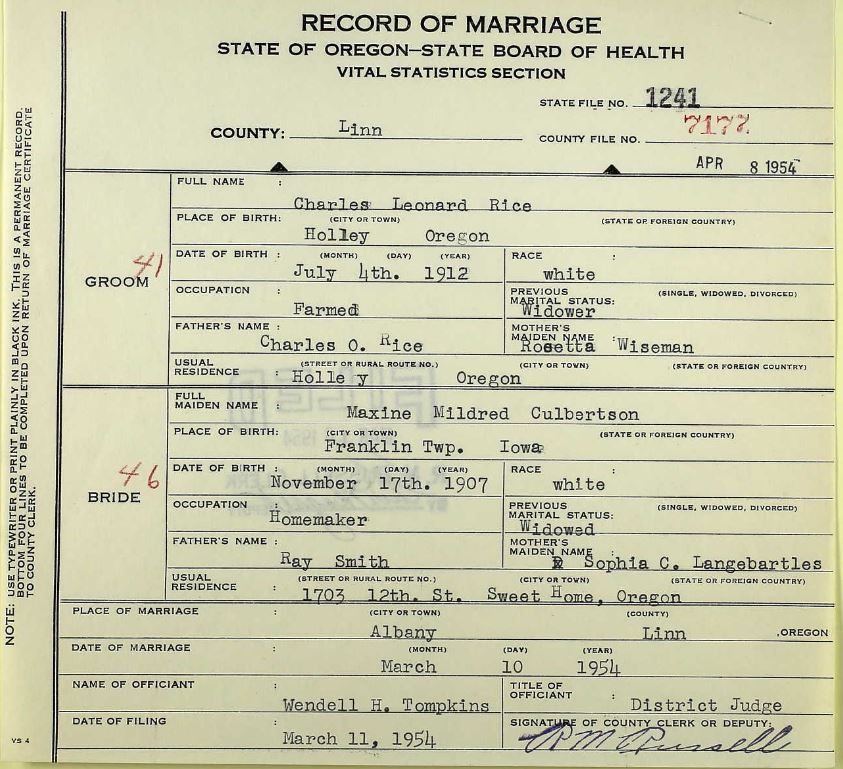 RECORD OF MARRIAGE
STATE OF OREGON—STATE BOARD OF HEALTH
VITAL STATISTICS SECTION
STATE FILE NO. 1241
COUNTY: Linn
COUNTY FILE NO. 7177
APR 8 1954
FULL NAME : Charles Leonard Rice
PLACE OF BIRTH: (CITY OR TOWN) (STATE OR FOREIGN COUNTRY)
Holley Oregon
DATE OF BIRTH : (MONTH) (DAY) (YEAR) RACE :
July 4th. 1912 white
GROOM 41
OCCUPATION : Farmed
PREVIOUS MARITAL STATUS: (SINGLE, WIDOWED, DIVORCED)
Widower
FATHER'S NAME : Charles O. Rice
MOTHER'S MAIDEN NAME : Rosetta Wiseman
USUAL RESIDENCE : (STREET OR RURAL ROUTE NO.) (CITY OR TOWN) (STATE OR FOREIGN COUNTRY)
Holle y Oregon
FULL MAIDEN NAME : Maxine Mildred Culbertson
PLACE OF BIRTH: (CITY OR TOWN) (STATE OR FOREIGN COUNTRY)
Franklin Twp. Iowa
DATE OF BIRTH : (MONTH) (DAY) (YEAR) RACE :
November 17th. 1907 white
BRIDE 46
OCCUPATION : Homemaker
PREVIOUS MARITAL STATUS: (SINGLE, WIDOWED, DIVORCED)
Widowed
FATHER'S NAME : Ray Smith
MOTHER'S MAIDEN NAME : Sophia C. Langebartles
USUAL RESIDENCE : (STREET OR RURAL ROUTE NO.) (CITY OR TOWN) (STATE OR FOREIGN COUNTRY)
1703 12th. St. Sweet Home, Oregon
PLACE OF MARRIAGE : (CITY OR TOWN) (COUNTY)
Albany Linn ,OREGON
DATE OF MARRIAGE : (MONTH) (DAY) (YEAR)
March 10 1954
NAME OF OFFICIANT : Wendell H. Tompkins
TITLE OF OFFICIANT : District Judge
DATE OF FILING : March 11, 1954
SIGNATURE OF COUNTY CLERK OR DEPUTY:
R M Russell
NOTE: USE TYPEWRITER OR PRINT PLAINLY IN BLACK INK. THIS IS A PERMANENT RECORD.
BOTTOM FOUR LINES TO BE COMPLETED UPON RETURN OF MARRIAGE CERTIFICATE
TO COUNTY CLERK.
VS 4